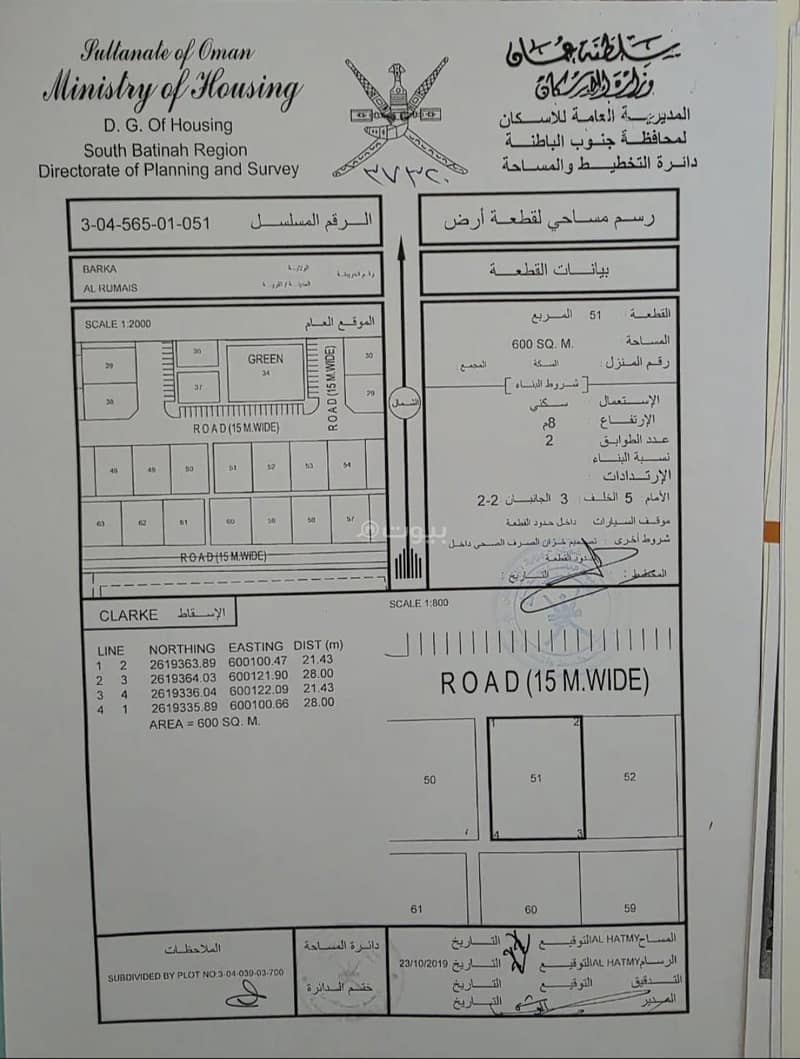 Sultanate of Oman
Ministry of Housing
D. G. Of Housing
South Batinah Region
Directorate of Planning and Survey
سلطنة عمان
وزارة الإسكان
المديرية العامة للاسكان
لمحافظة جنوب الباطنة
دائرة التخطيط والمساحة
٣٧٣٢٠
3-04-565-01-051 الرقم المسلسل
رسم مساحي لقطعة أرض
BARKA الولاية
AL RUMAIS المدينة / القرية
رقم الخريطة
بيانات القطعة
SCALE 1:2000 الموقع العام
39 36 GREEN 34 30
38 37 29
ROAD (15 M.WIDE)
ROAD (15 M.WIDE)
48 49 50 51 52 53 54
63 62 61 60 59 58 57
ROAD (15 M.WIDE)
الشمال
القطعة 51 المربع
المساحة 600 SQ. M.
رقم المنزل السكة المجمع
شروط البناء
الإستعمال سكني
الإرتفاع 8م
عدد الطوابق 2
نسبة البناء
الإرتدادات
الأمام 5 الخلف 3 الجانبان 2-2
موقف السيارات داخل حدود القطعة
شروط أخرى : تصميم خزان الصرف الصحي داخل
حدود القطعة
المخطط : التاريخ :
بيوت
CLARKE الإسقاط
LINE NORTHING EASTING DIST (m)
1 2 2619363.89 600100.47 21.43
2 3 2619364.03 600121.90 28.00
3 4 2619336.04 600122.09 21.43
4 1 2619335.89 600100.66 28.00
AREA = 600 SQ. M.
SCALE 1:800
ROAD (15 M.WIDE)
1 2
50 51 52
4 3
61 60 59
الملاحظات
SUBDIVIDED BY PLOT NO:3-04-039-03-700
دائرة المساحة
ختم الدائرة
المساح AL HATMY التوقيع التاريخ
الرسام AL HATMY التوقيع التاريخ 23/10/2019
التدقيق التوقيع التاريخ
المدير التاريخ